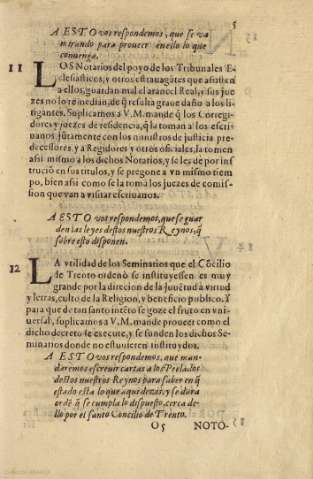 5
A ESTO vos respondemos, que se va
mirando para proueer en ello lo que
conuenga.
11 LOS Notarios del poyo de los Tribunales E-
clesiasticos, y otros estrauagātes que assisten
a ellos, guardan mal el arancel Real, y sus jue
zes no lo remediā, de q̄ resulta graue daño a los li
tigantes. Suplicamos a V. M. mande q̄ los Corregi-
dores y juezes de residencia, q̄ la toman a los escri
uanos, juntamente con los ministros de justicia pre
decessores, y a Regidores y otros oficiales, la tomen
assi mismo a los dichos Notarios, y se les dè por ins
trucciō en sus titulos, y se pregone a vn mismo tiem
po, bien assi como se la toma los juezes de comis-
sion que van a visitar escriuanos.
A ESTO vos respondemos, que se guar
den las leyes destos nuestros Reynos, q̄
sobre esto disponen.
12 LA vtilidad de los Seminarios que el Cōcilio
de Trento ordenò se instituyessen es muy
grande por la direcion de la juuētud à virtud
y letras, culto de la Religion, y beneficio publico. Y
para que de tan santo intēto se goze el fruto en vni
uersal, suplicamos a V. M. mande proueer como el
dicho decreto se execute, y se funden los dichos Se
minarios donde no estuuieren instituydos.
A ESTO vos respondemos, que man-
daremos escreuir cartas a los Prelados
destos nuestros Reynos para saber en q̄
estado està lo que aqui dezis, y se dara
ordē q̄ se cumpla lo dispuesto, cerca de
llo por el santo Concilio de Trento.
O5 NOTO-